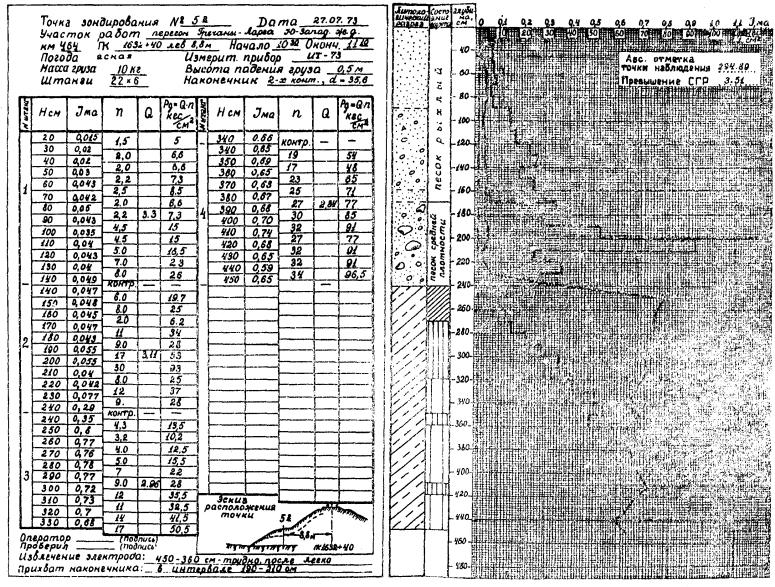 Точка зондирования № 5а Дата 27.07.73
Участок работ перегон Гречаны-Ларга Юго-Запад. ж.д.
км 464 ПК 1632+40 лев 8,8м Начало 10 Оконч. 11
Погода ясная Измерит. прибор ИТ-73
Масса груза 10 кг Высота падения груза 0,5 м
Штанги 22×6 Наконечник 2-х кон., d = 35,6
Н см Jма п Q Рд=Q·п кгс/см² Н см Jма п Q Рд=Q·п кгс/см²
1
20 0,015
1,5 5
30 0,02
2,0 6,6
40 0,02
2,0 6,6
50 0,03
2,2 7,3
60 0,043
2,5 8,5
70 0,042
2,0 6,6
80 0,06
2,2 3.3 7,3
90 0,043
4,5 15
100 0,035
4,5 15
110 0,04
5.0 16,5
120 0,043
7.0 23
130 0,04
8.0 26
140 0,049
контр. — —
2
140 0,047
6.0 19.7
150 0,048
8.0 25
160 0,045
2.0 6.2
170 0,047
11 34
180 0,043
9.0 28
190 0,055
17 3,11 53
200 0,055
30 93
210 0,04
8.0 25
220 0,042
12 37
230 0,077
9. 28
240 0,29
контр. — —
3
240 0,35
4,3 13,5
250 0,6
3,2 10,2
260 0,77
4.0 12,5
270 0,76
5.0 15,5
280 0,78
7 22
290 0,77
9.0 2.96 28
300 0,72
12 35,5
310 0,73
11 32,5
320 0,7
14 41,5
330 0,68
17 50,5
4
340 0,66
контр. — —
340 0,65
19 54
350 0,69
17 48
360 0,65
23 65
370 0,63
25 71
380 0,67
27 2,84 77
390 0,68
30 85
400 0,70
32 91
410 0,74
27 77
420 0,68
32 91
430 0,65
32 91
440 0,59
34 96,5
450 0,65
Эскиз расположения точки
5а
8,8м
пк1632+40
Оператор (Подпись)
Проверил (Подпись)
Извлечение электрода: 450-360 см - трудно, после легко
Прихват наконечника: в интервале 190-210 см
Литологический разрез
Состояние грунта
Глубина, см
песок рыхлый
песок средней плотности
40
80
120
160
180
200
220
240
260
280
300
320
340
360
380
400
420
440
460
480
0 0,1 0,2 0,3 0,4 0,5 0,6 0,7 0,8 0,9 1,0 1,1 Jма
Абс. отметка
точки наблюдения 294.89
Превышение СГР 3.51